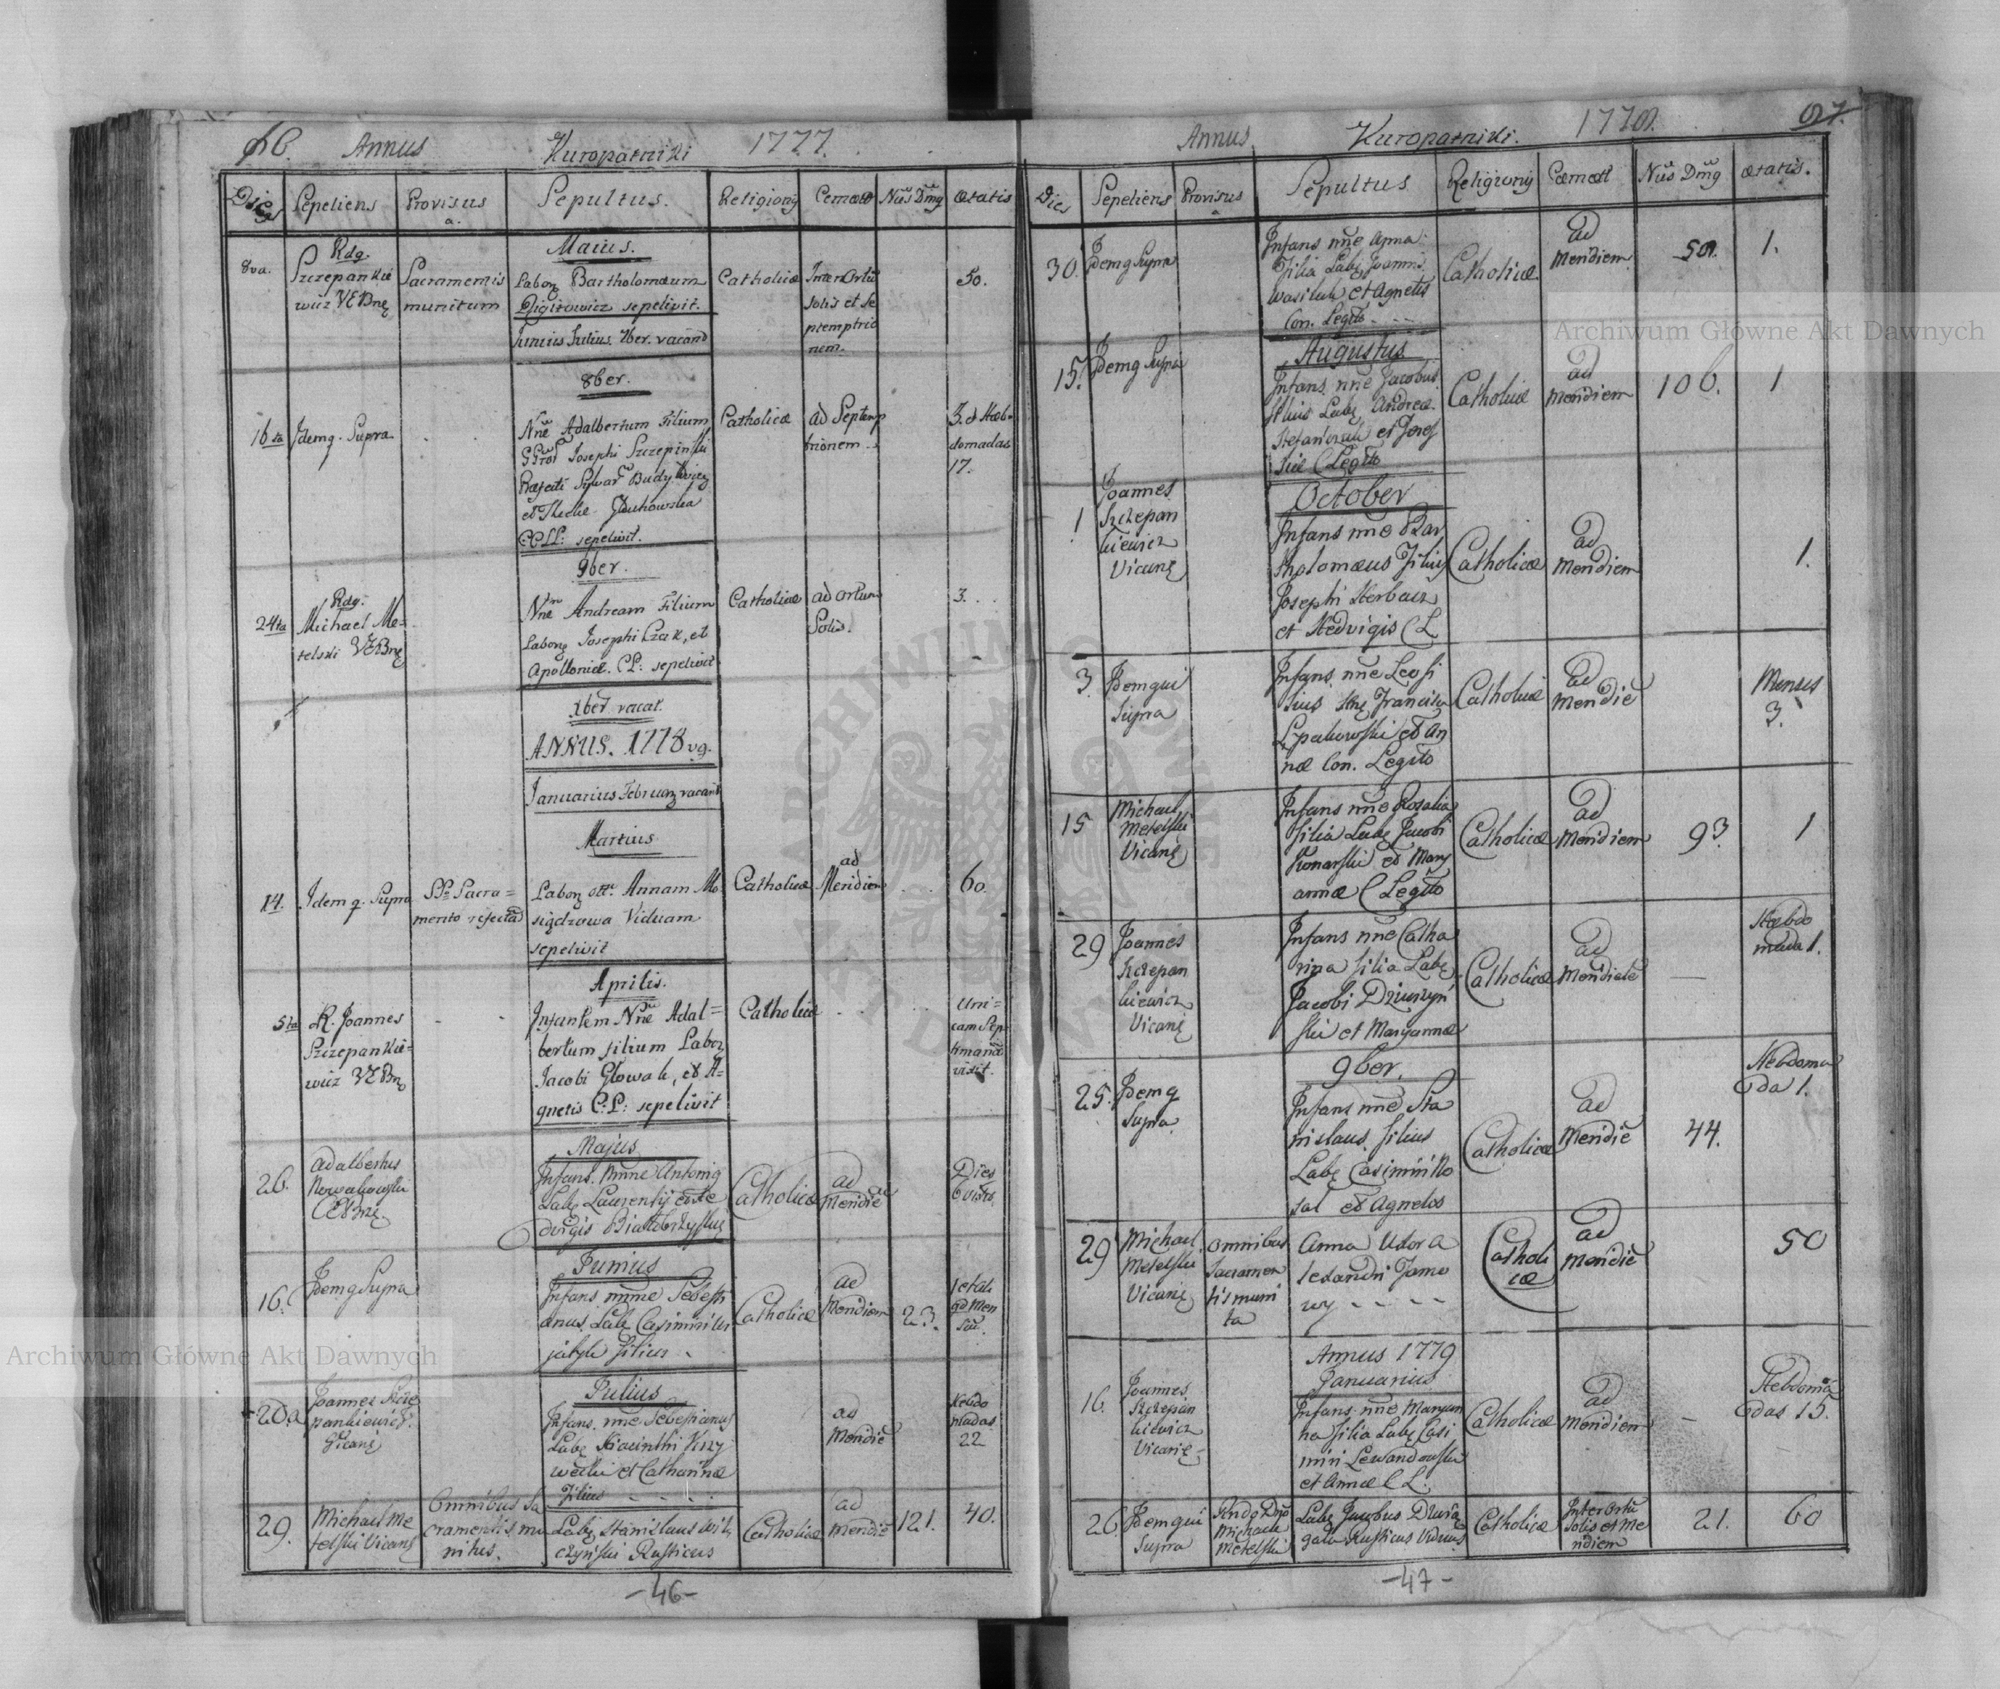 46. Annus Kuropatniki 1777.
Dies Sepeliens Provisus Sepultus. Religionis Cemet Nus Dmq Ætatis
Maius.
8va. Rdq. Szczepankie
wicz VEBnę
Sacramentis
munitum
Labor Bartholomæum
sepelivit.
Catholicæ
Inter Ortū
solis et se
ptemptrio
nem.
50.
Junius Julius. 7ber. vacant
8ber.
16ta Idemq. Supra
Nne Adalbertum Filium
Josephi Szczepinski
et Theclæ Głuchowska
sepelivit.
Catholicæ
ad Septemp
trionem
3. et Heb-
domadas
17.
9ber.
24ta Rdq.
Michael Me-
telski VEBnę
Nne Andream Filium
Labor Josephi Czak, et
Apolloniæ. C.L: sepelivit
Catholicæ
ad ortum
Solis.
3.
xber. vacat.
ANNUS. 1778
Januarius Februarz vacant
Martius.
14. Idemq. Supra
Sacra=
mento refectā
Labor Annam Mo
siądzowa Viduam
sepelivit
Catholicæ
ad
Meridiem
60.
Aprilis.
5ta R. Joannes
Szczepankie=
wicz VEBnę
Infantem Nne Adal=
bertum filium Labor
Jacobi Głowak, et A=
gnetis C.L: sepelivit
Catholicæ
Uni=
cam Sep
timana
vixit.
Majus
26. Adalbertus
Nowakowski
CEBnę
Infans. nne Antonig
Labę Laurentij et He
dvigis
Catholicæ
ad
Meridiē
Dies
6 vixit
Junius
16. Idemq Supra
Infans nne Sebesti
anus Labę Casimiri
filius
Catholicæ
ad
Meridiem
23.
Julius
20. Joannes Szcze
pankiewicz
Vicarię
Infans. nne Sebestianus
Labę Hiacinthi Krzy
wecki et Catharinæ
Filius
ad
Meridiē
Hebdo
madas
22
29. Michael Me
telski Vicarię
Omnibus Sa
cramentis mu
nitus.
Labę Stanislaus Wil
czyński Rusticus
Catholicæ
ad
Meridiē
121. 40.
-46-
Annus Kuropatniki. 1778. 47.
Dies Sepeliens Provisus Sepultus Religionis Cæmet Nus Dmq Ætatis.
30. Idemq Supra
Infans nne Anna
Filia Labę Joannis
Wasiluk et Agnetis
Con. Legito
Catholicæ
ad
Meridiem
50. 1.
Augustus
15. Idemq Supra
Infans nne Jacobus
filius Labę Andreæ
et Josef
C Legito
Catholicæ
ad
Meridiem
106. 1
October
1 Joannes
Szczepan
kiewicz
Vicarię
Infans nne Bar
tholomæus Filius
Josephi Herbacz
et Hedvigis C L
Catholicæ
ad
Meridiem
1.
3. Idemqui
Supra
Infans nne Leo fi
lius Francisci
Łpakowski et An
næ Con. Legito
Catholicæ
ad
Meridiē
Menses
3.
15 Michael
Metelski
Vicarię
Infans nne Rozalia
filia Labę Jacobi
Konarski et Mary
annæ C Legito
Catholicæ
ad
Meridiem
93. 1
29 Joannes
Szczepan
kiewicz
Vicarię
Infans nne Catha
rina filia Labę
Jacobi Dziuszyń
ski et Maryannæ
Catholicæ
ad
Meridiē
Hebdo
mada 1.
9ber.
25. Idemq
Supra
Infans nne Sta
nislaus filius
Labę Casimiri Ko
sal et Agnetos
Catholicæ
ad
Meridiē
44.
Hebdoma
da 1.
29 Michael
Metelski
Vicarię
Omnibus
Sacramen
tis muni
ta
Anna Udor A
lexandri Jano
wy
Catholi
cæ
ad
Meridiē
50
Annus 1779
Januarius
16. Joannes
Szczepan
kiewicz
Vicarię
Infans nne Maryan
na filia Labę Casi
miri Lewandowski
et Annæ C L.
Catholicæ
ad
Meridiem
Hebdoma
das 15.
26 Idemqui
Supra
Michaele
Metelski
Labę Jacobus
Rusticus Viduus
Catholicæ
Inter Ortū
Solis et Me
ridiem
21. 60
-47-
Archiwum Główne Akt Dawnych
Archiwum Główne Akt Dawnych